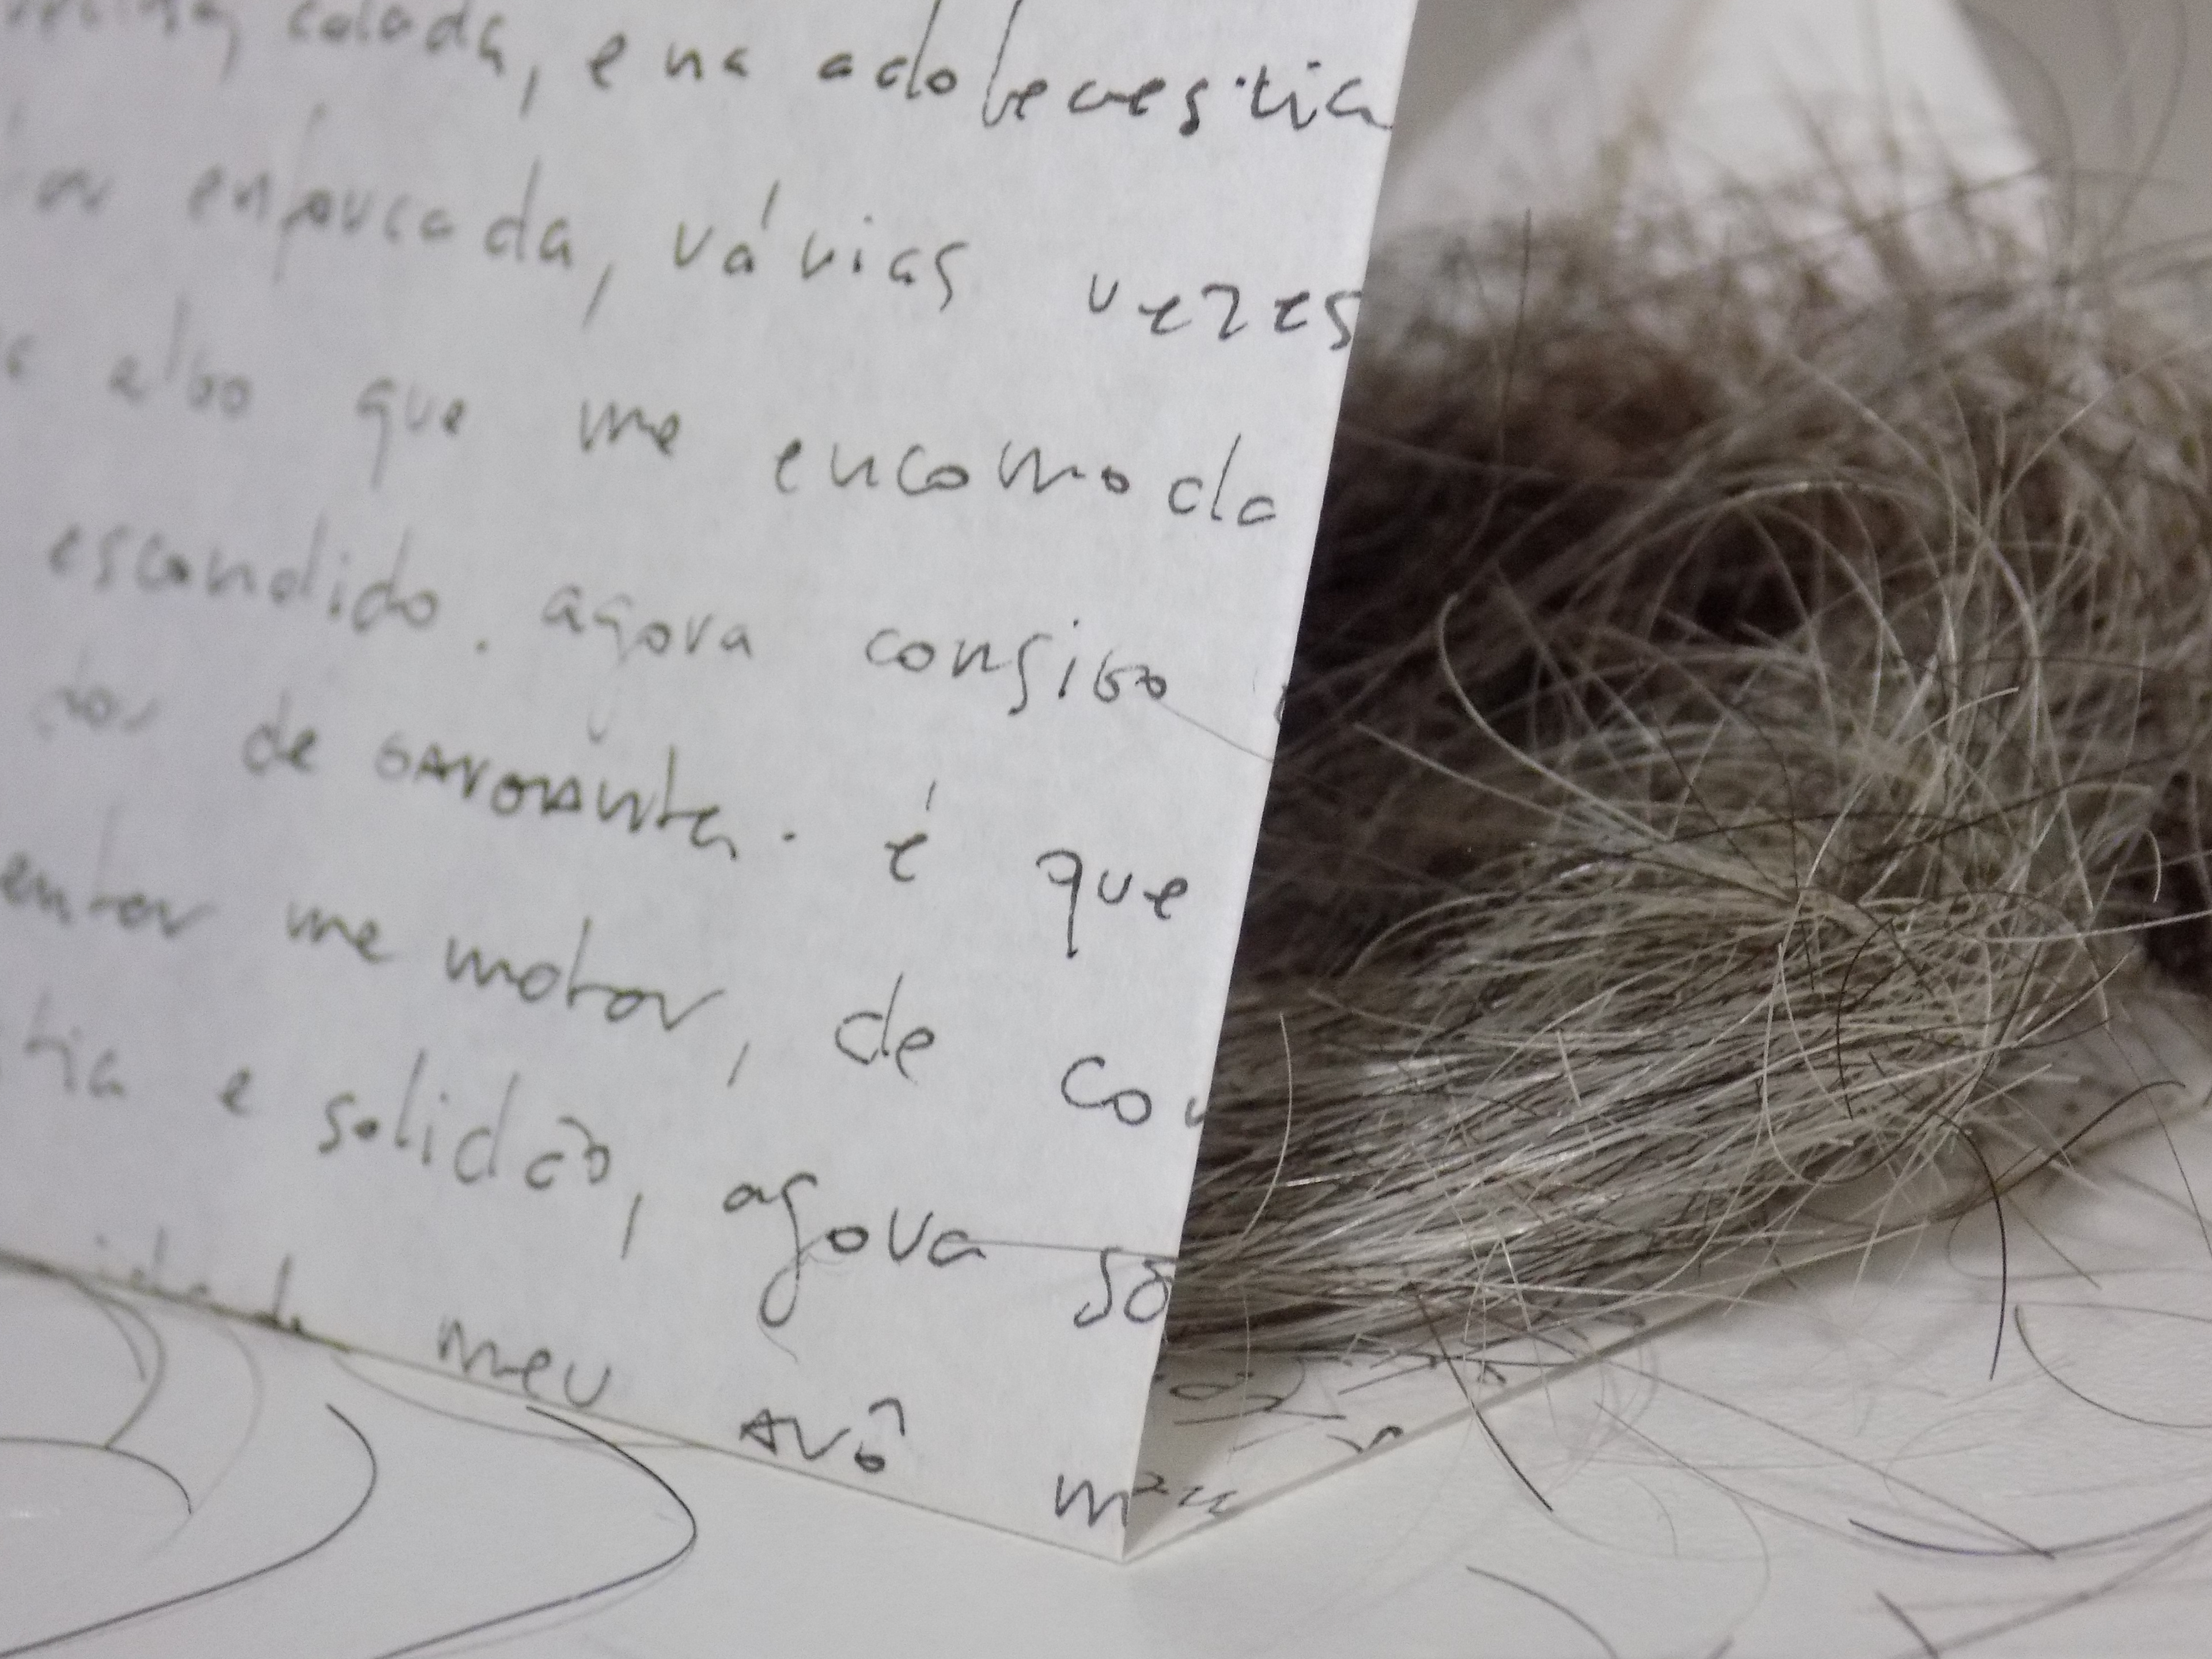 colada, e na adolecestia
enforcada, várias vezes
algo que me encomoda
escondido. agora consigo
de GARGANTA. é que
entar me motor, de co
tia e solidão, agora so
idade meu AVÔ m